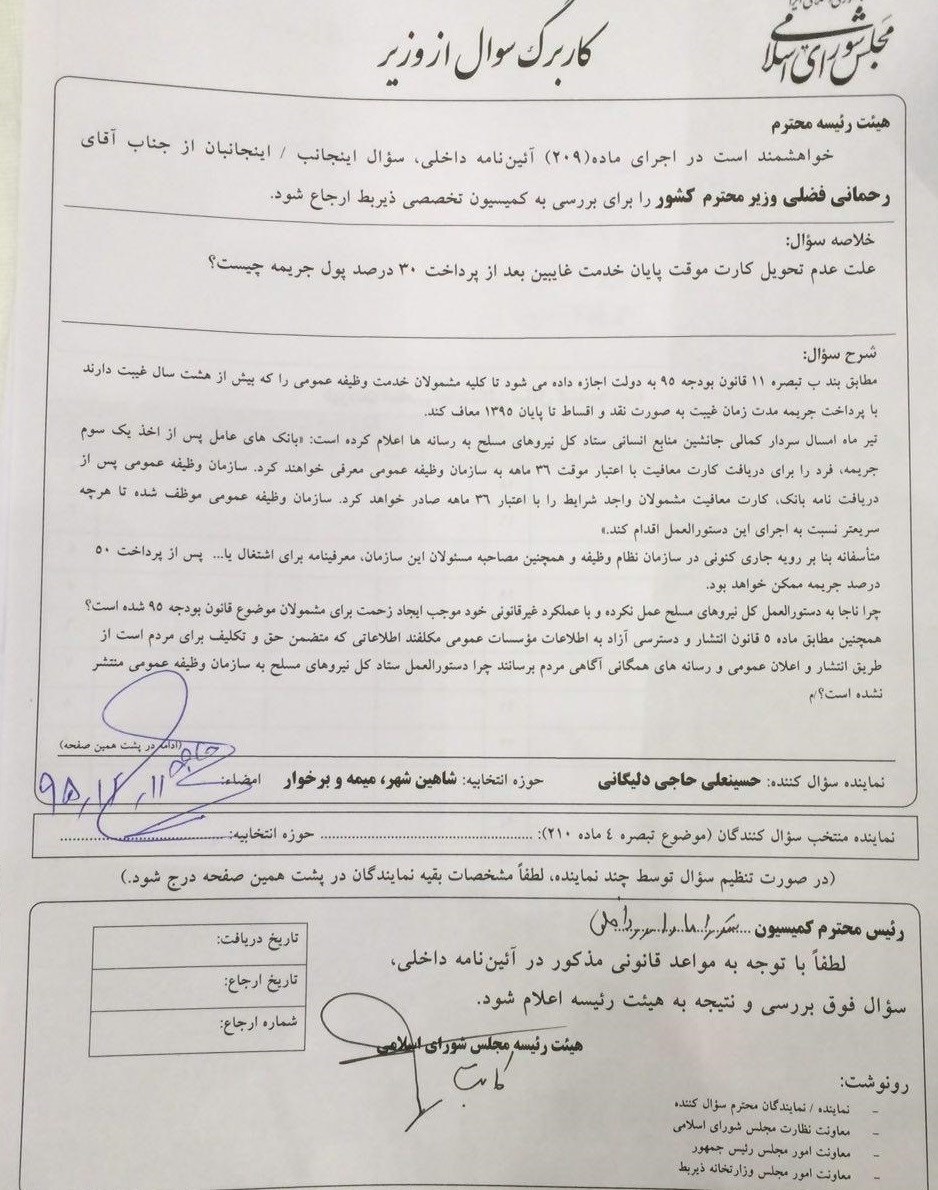 مجلس شورای اسلامی
کاربرگ سوال از وزیر
هیئت رئیسه محترم
خواهشمند است در اجرای ماده(۲۰۹) آئین‌نامه داخلی، سؤال اینجانب / اینجانبان از جناب آقای
رحمانی فضلی وزیر محترم کشور را برای بررسی به کمیسیون تخصصی ذیربط ارجاع شود.
خلاصه سؤال:
علت عدم تحویل کارت موقت پایان خدمت غایبین بعد از پرداخت ۳۰ درصد پول جریمه چیست؟
شرح سؤال:
مطابق بند ب تبصره ۱۱ قانون بودجه ۹۵ به دولت اجازه داده می شود تا کلیه مشمولان خدمت وظیفه عمومی را که بیش از هشت سال غیبت دارند
با پرداخت جریمه مدت زمان غیبت به صورت نقد و اقساط تا پایان ۱۳۹۵ معاف کند.
تیر ماه امسال سردار کمالی جانشین منابع انسانی ستاد کل نیروهای مسلح به رسانه ها اعلام کرده است: «بانک های عامل پس از اخذ یک سوم
جریمه، فرد را برای دریافت کارت معافیت با اعتبار موقت ۳۶ ماهه به سازمان وظیفه عمومی معرفی خواهند کرد. سازمان وظیفه عمومی پس از
دریافت نامه بانک، کارت معافیت مشمولان واجد شرایط را با اعتبار ۳۶ ماهه صادر خواهد کرد. سازمان وظیفه عمومی موظف شده تا هرچه
سریعتر نسبت به اجرای این دستورالعمل اقدام کند.»
متأسفانه بنا بر رویه جاری کنونی در سازمان نظام وظیفه و همچنین مصاحبه مسئولان این سازمان، معرفینامه برای اشتغال یا... پس از پرداخت ۵۰
درصد جریمه ممکن خواهد بود.
چرا ناجا به دستورالعمل کل نیروهای مسلح عمل نکرده و با عملکرد غیرقانونی خود موجب ایجاد زحمت برای مشمولان موضوع قانون بودجه ۹۵ شده است؟
همچنین مطابق ماده ۵ قانون انتشار و دسترسی آزاد به اطلاعات مؤسسات عمومی مکلفند اطلاعاتی که متضمن حق و تکلیف برای مردم است از
طریق انتشار و اعلان عمومی و رسانه های همگانی آگاهی مردم برسانند چرا دستورالعمل ستاد کل نیروهای مسلح به سازمان وظیفه عمومی منتشر
نشده است؟/م
(ادامه در پشت همین صفحه)
نماینده سؤال کننده: حسینعلی حاجی دلیگانی حوزه انتخابیه: شاهین شهر، میمه و برخوار امضاء:
۹۵,۱۲,۱۱
نماینده منتخب سؤال کنندگان (موضوع تبصره ٤ ماده ۲۱۰): ........................ حوزه انتخابیه: ........................
(در صورت تنظیم سؤال توسط چند نماینده، لطفاً مشخصات بقیه نمایندگان در پشت همین صفحه درج شود.)
رئیس محترم کمیسیون
لطفاً با توجه به مواعد قانونی مذکور در آئین‌نامه داخلی،
سؤال فوق بررسی و نتیجه به هیئت رئیسه اعلام شود.
هیئت رئیسه مجلس شورای اسلامی
تاریخ دریافت:
تاریخ ارجاع:
شماره ارجاع:
رونوشت:
- نماینده / نمایندگان محترم سؤال کننده
- معاونت نظارت مجلس شورای اسلامی
- معاونت امور مجلس رئیس جمهور
- معاونت امور مجلس وزارتخانه ذیربط